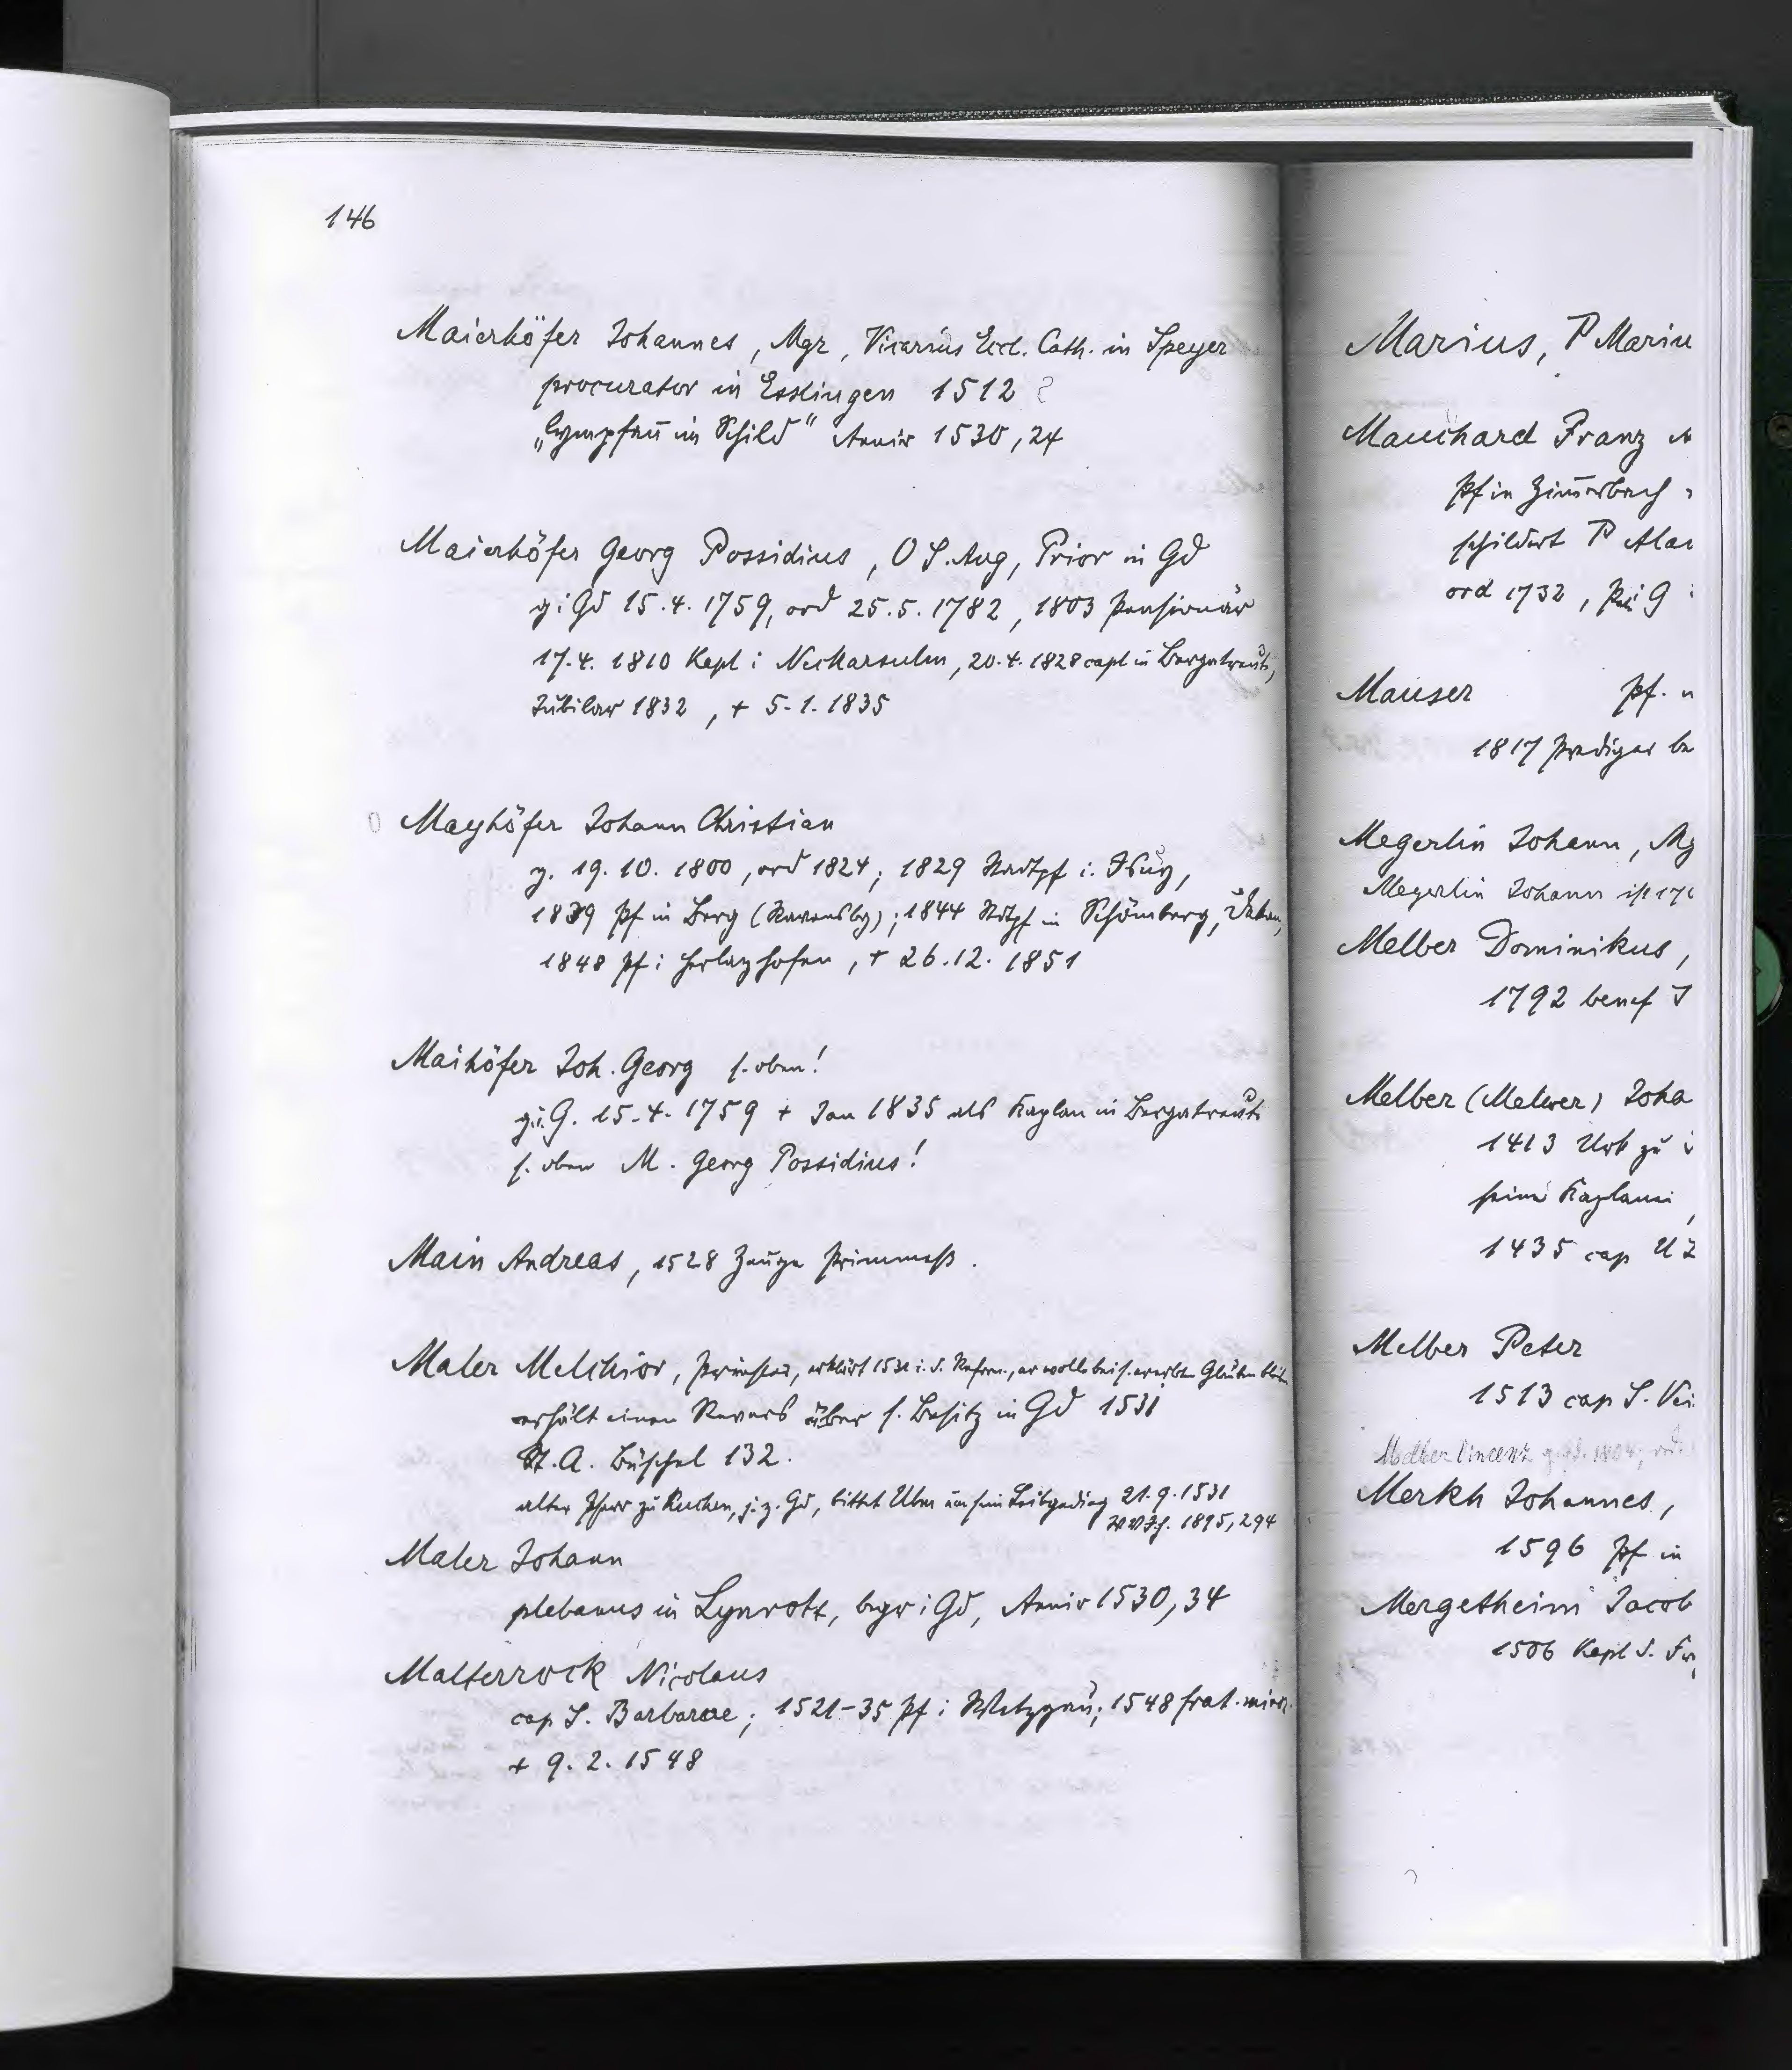 146
Maierhöfer Johannes, Mgr, Vicarius Eccl. Cath. in Speyer
procurator in Esslingen 1512
im Schild" Anniv 1530, 24
Maierhöfer Georg Possidius, O S. Aug, Prior in Gd
g i Gd 15.4.1759, ord 25.5.1782, 1803 Pensionär
17.4. 1810 Kapl i Neckarsulm, 20.4.1828 capl in Bergatreute,
Jubilar 1832, + 5.1.1835
Mayhöfer Johann Christian
g. 19.10.1800, ord 1824; 1829 Stadtpf i.
1839 Pf in Berg (Ravensbg); 1844 Stdtpf in Schömberg, Dekan,
1848 Pf i Herlazhofen, + 26.12.1851
Maihöfer Joh. Georg s. oben!
g i. G. 15.4.1759 + Jan 1835 als Kaplan in Bergatreute
s. oben M. Georg Possidius!
Main Andreas, 1528 Zeuge Frimmess.
Maler Melchior, Priester, erklärt 1531 i. d. Reform., er wolle bei s. ererbten Glauben bleiben
erhält einen Revers über s. Besitz in Gd 1531
St. A. Büschel 132.
alter Pfarr zu Kuchen, j. z. Gd, bittet Ulm um sein Leibgeding 21.9.1531
1895, 294
Maler Johann
plebanus in Lynrott, begr i Gd, Anniv 1530, 34
Malterrock Nicolaus
cap S. Barbarae; 1521-35 Pf i Wetzgau; 1548 frat. minor.
+ 9.2.1548
Marius, P Mariu
Mauchard Franz
Pf in Zimerbach
schildert P Alan
ord 1732, G
Mauser Pf.
1817 Prediger be
Megerlin Johann, Mg
Megerlin Johann ist 17
Melber Dominikus,
1792 benef
Melber (Melwer) Joha
1413 Urk zu
seine Kaplanei,
1435 cap
Melber Peter
1513 cap S. Vei
Melber Vincenz
Merkh Johannes,
1596 Pf in
Mergetheim Jacob
1506 Kapl S.